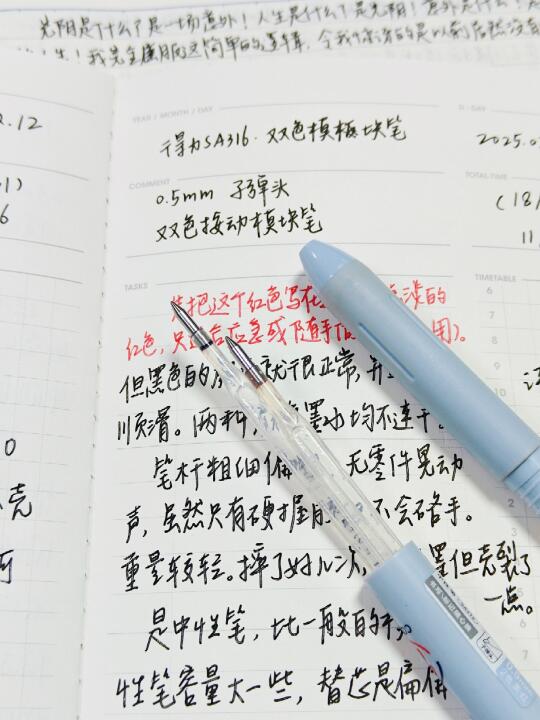 光阴是什么?是一场意外!人生是什么?是光阴!意外是什么!是
人生!我完全屈服这简单的逻辑,令我惊讶的是以前居然没有
2.12
YEAR / MONTH / DAY
D - DAY
得力SA316. 双色模板块笔
2025.0
COMMENT
TOTAL TIME
0.5mm 子弹头
(18/
双色按动模块笔
11.
TASKS
TIMETABLE
先把这个红色写在 淡的
红色,只 应急或随手 用)。
但黑色的 就很正常,并
顺滑。两种, 墨水均不连干。
笔杆粗细偏 无零件晃动
声,虽然只有硬握 不会硌手。
重量较轻。摔了好几次, 墨但壳裂了
一点。
是中性笔,比一般的
性笔容量大一些,替芯是偏
6
7
8
9
10
11
12
1
2